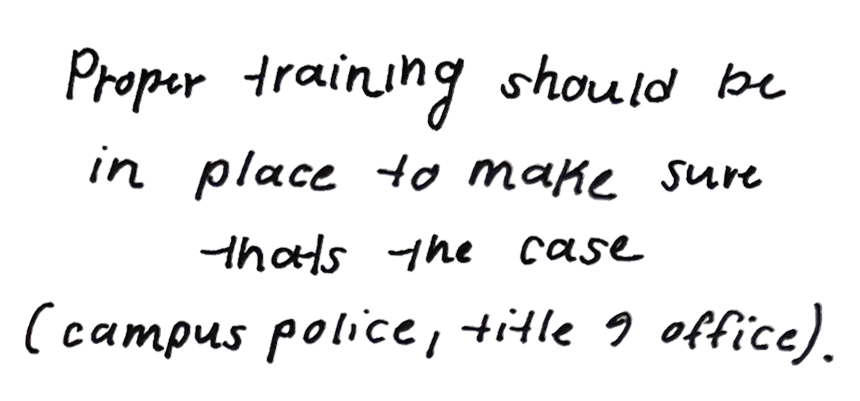 Proper training should be
in place to make sure
thats the case
(campus police, title 9 office).